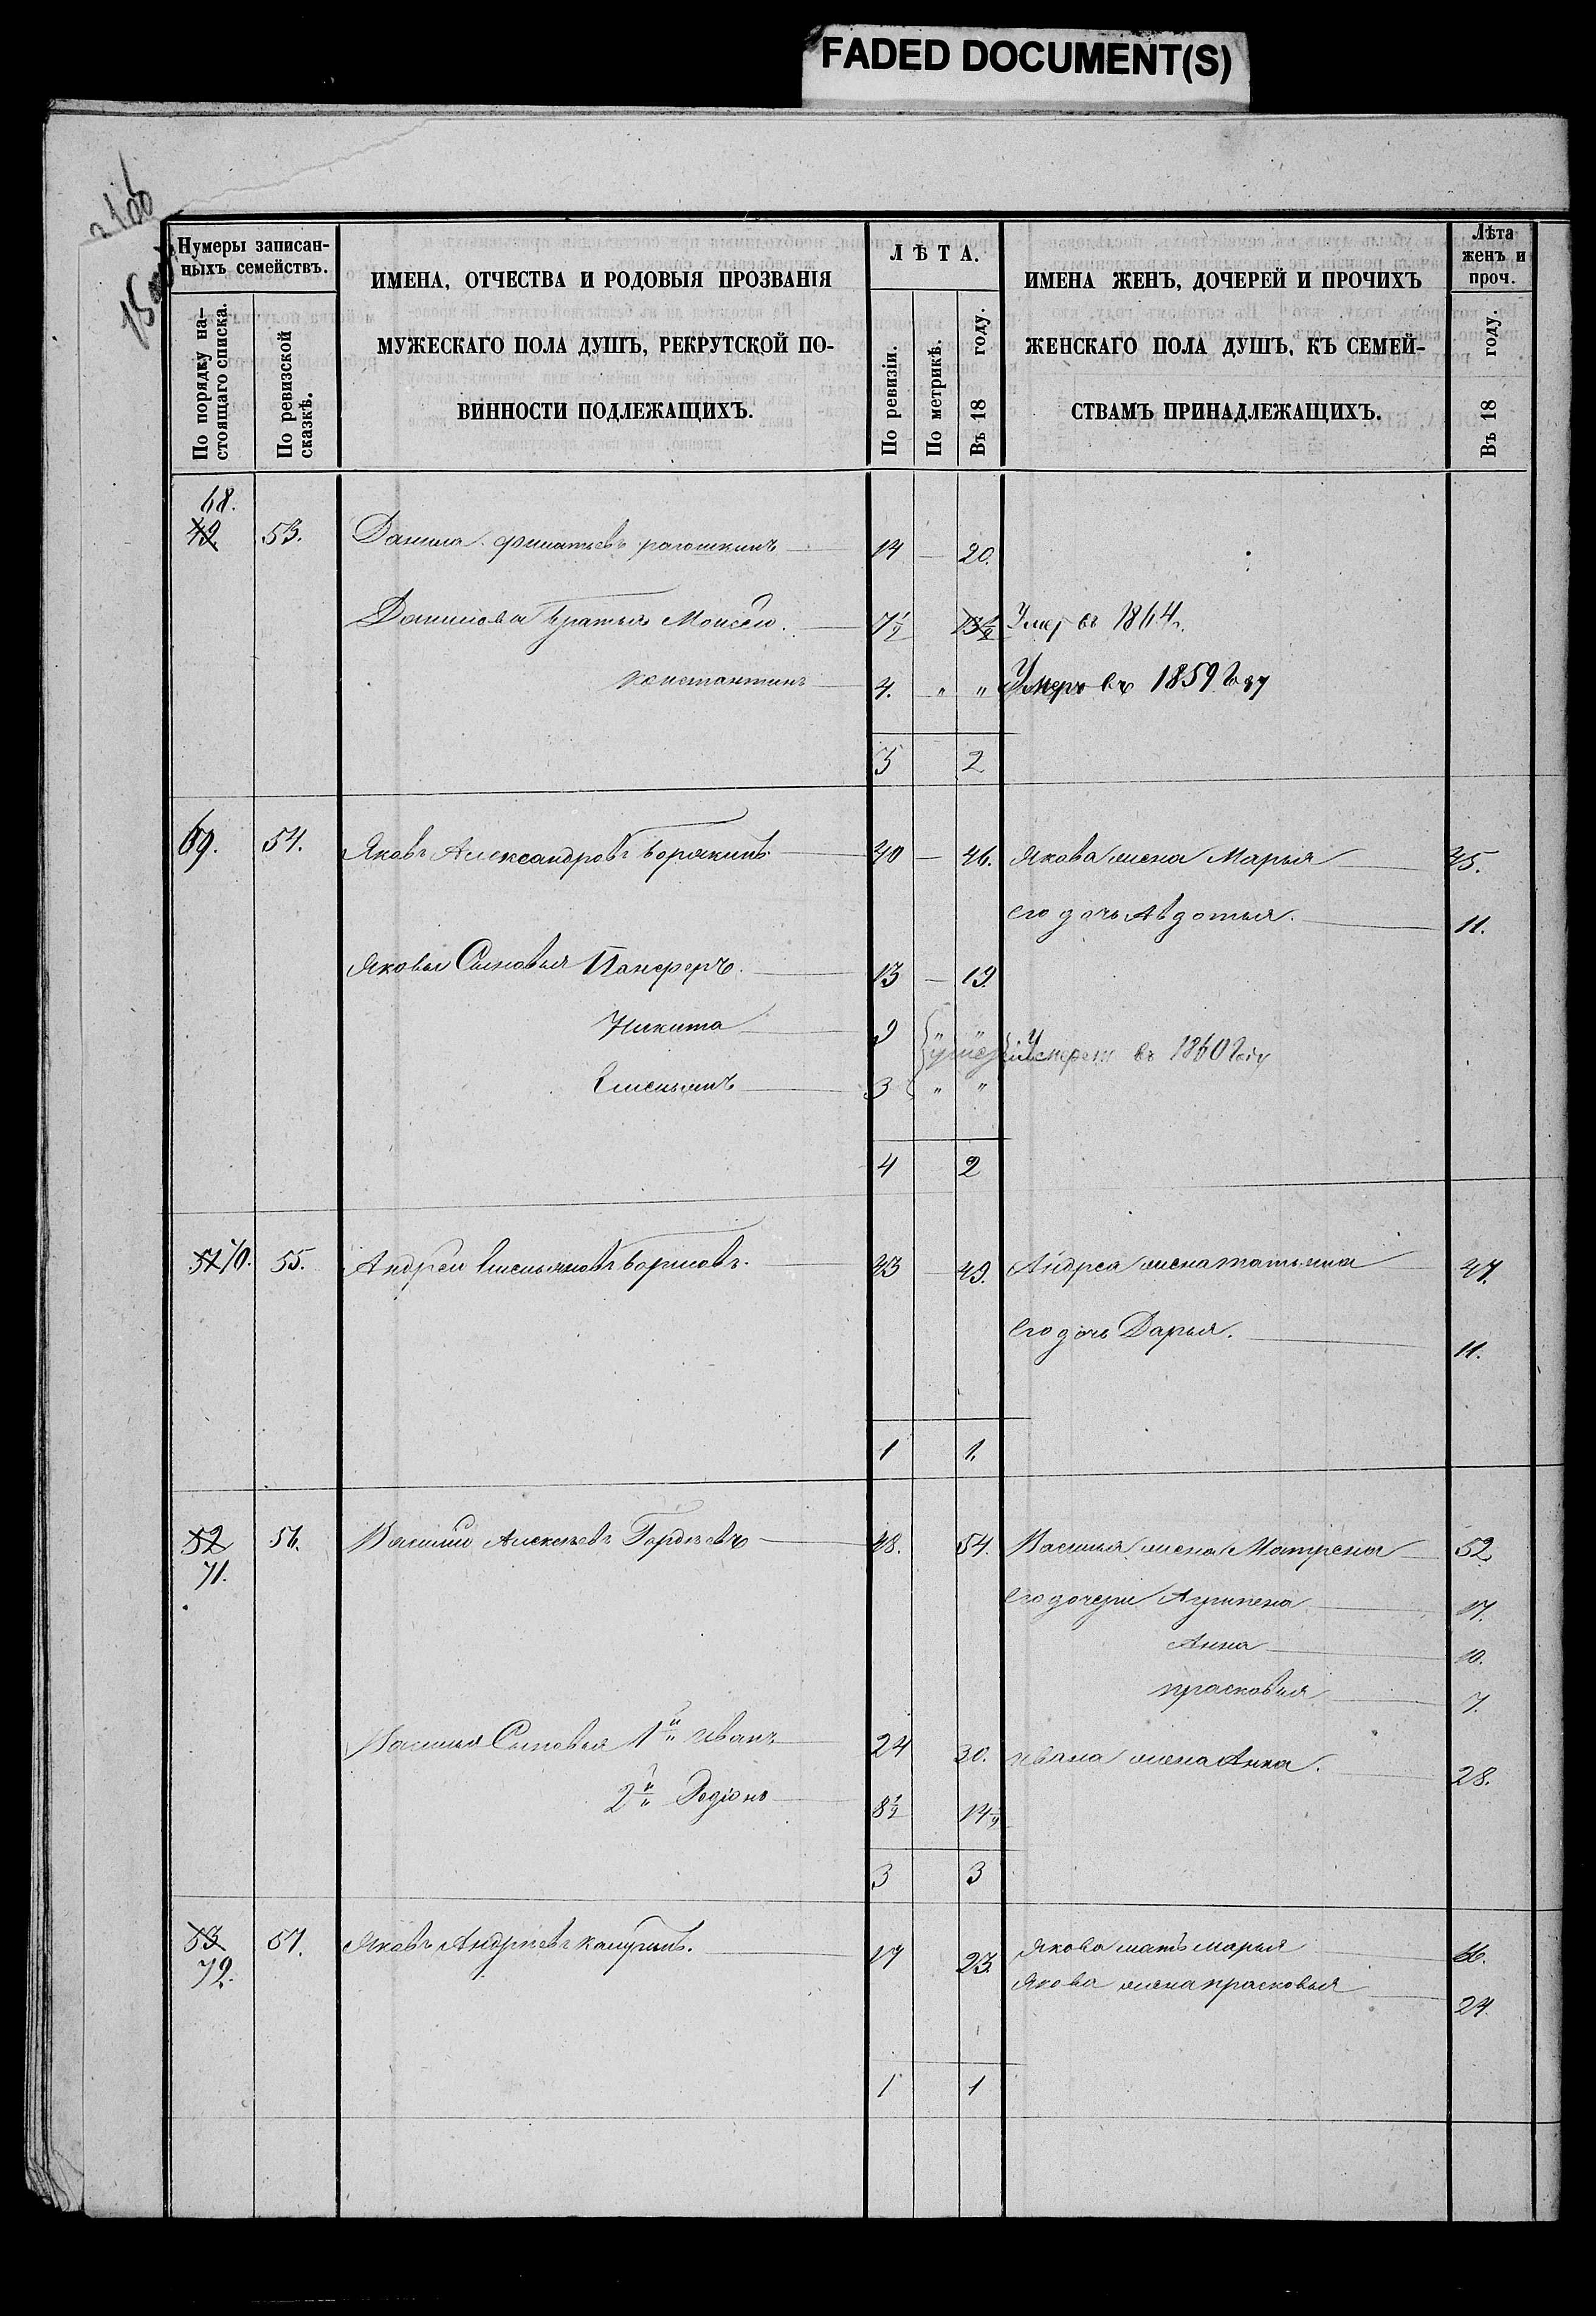 FADED DOCUMENT(S)
Нумеры записан-
ныхъ семействъ.
По порядку на-
стоящаго списка.
По ревизской
сказкѣ.
ИМЕНА, ОТЧЕСТВА И РОДОВЫЯ ПРОЗВАНІЯ
МУЖЕСКАГО ПОЛА ДУШЪ, РЕКРУТСКОЙ ПО-
ВИННОСТИ ПОДЛЕЖАЩИХЪ.
ЛѢТА.
По ревизіи.
По метрикѣ.
Въ 18 году.
ИМЕНА ЖЕНЪ, ДОЧЕРЕЙ И ПРОЧИХЪ
ЖЕНСКАГО ПОЛА ДУШЪ, КЪ СЕМЕЙ-
СТВАМЪ ПРИНАДЛЕЖАЩИХЪ.
Лѣта
женъ и
проч.
Въ 18 году.
68.
49 53. Данила 14 — 20.
Данилова братья Моисей. 7½ 13½ Умер въ 1864
константинъ 4. " " Умеръ въ 1859 году
3 2
69. 54. Яковъ Александровъ 40 — 46. Якова жена Марья 45.
его дочь Авдотья. 11.
Яковы Сыновья 13 — 19.
Никита 9 " " въ 1860 году
Емельянъ 3 " "
4 2
51 70. 55. Андрей Емельяновъ борисовъ. 43 49. Андрея жена татьяна 47.
его дочь Дарья. 11.
1 1.
52 56. Василий Алексѣевъ Гордѣевъ 48. 54. Василья жена Матрена 52
71.
его дочери Агрипена 17.
Анна 10.
прасковья 7.
Василья Сыновья 1й иванъ 24 30. ивана жена Анна. 28.
2й Родіонъ 8½ 14½
3 3
53 57. Яковъ Андреевъ 17 23. Якова мать марья 66.
72. Якова жена прасковья 24.
1 1